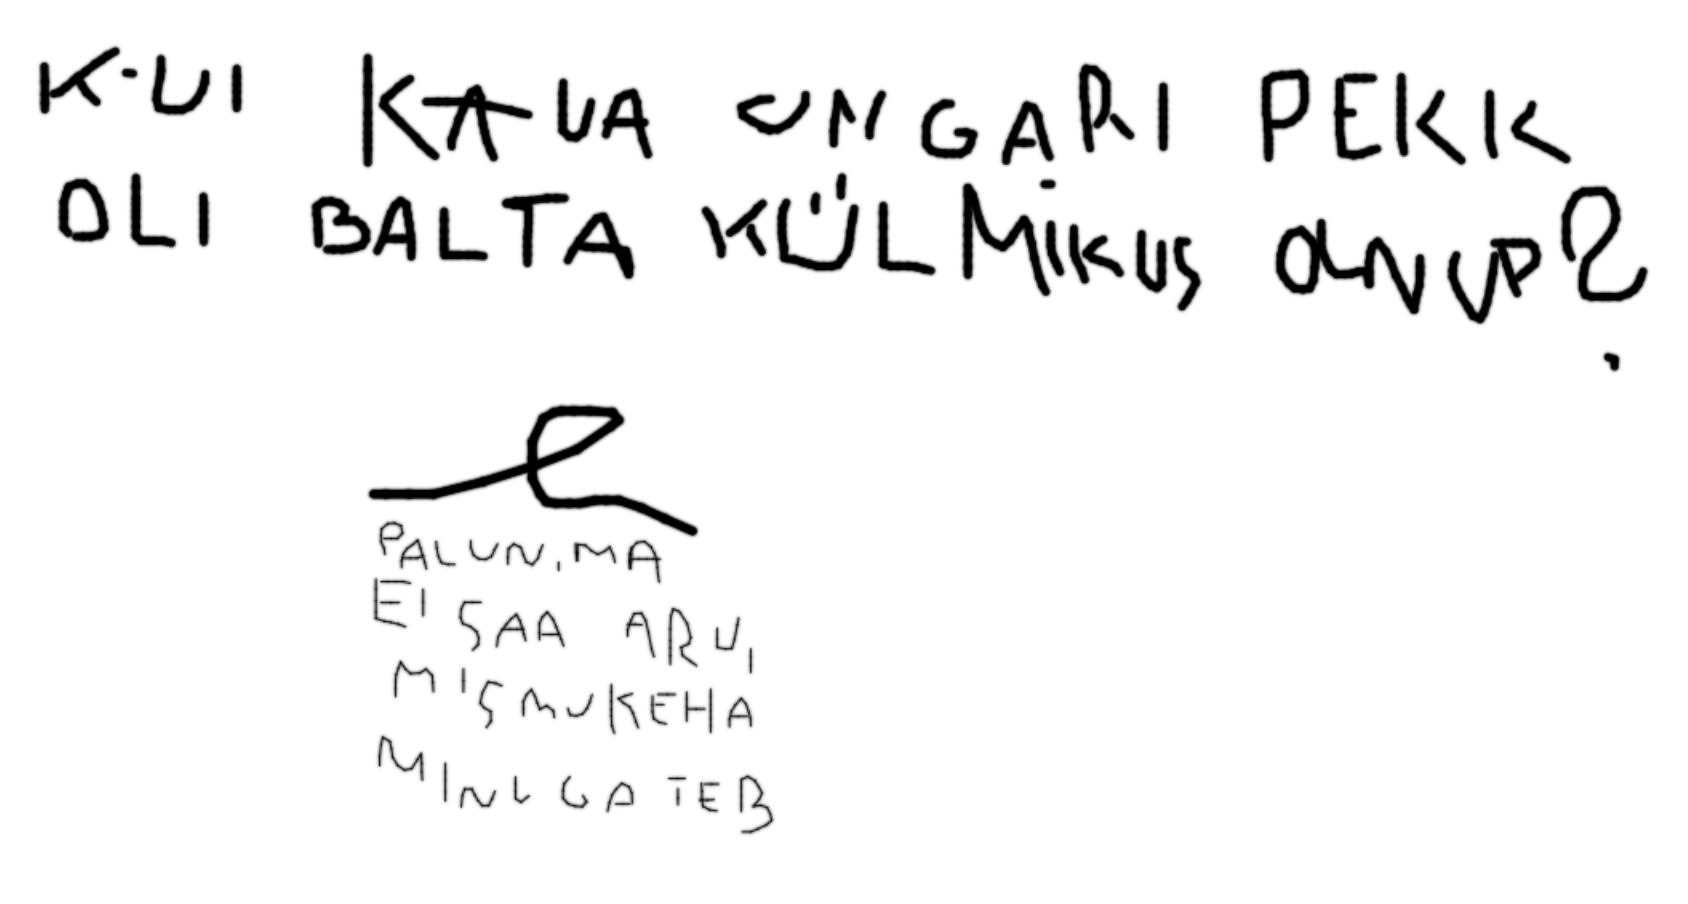 KUI KAUA UNGARI PEKK
OLI BALTA KÜLMIKUS OLNUD?
PALUN, MA
EI SAA ARU,
MIS MU KEHA
MINUGA TEEB